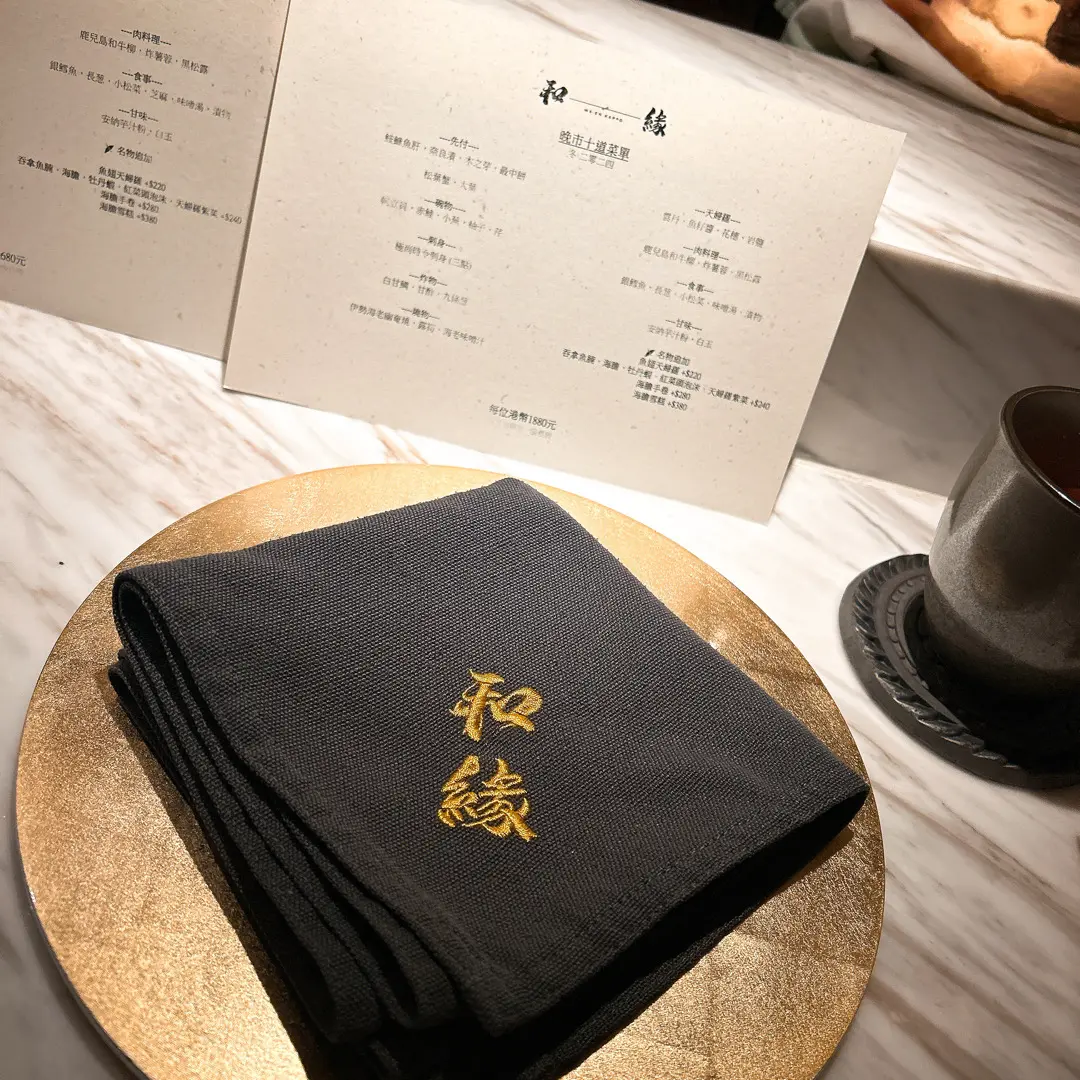 ---肉料理---
鹿兒島和牛柳，炸薯蓉，黑松露
---食事---
銀鱈魚，長葱，小松菜，芝麻，味噌湯，漬物
---甘味---
安納芋汁粉，白玉
名物追加
魚翅天婦羅 +$220
吞拿魚腩，海膽，牡丹蝦，紅菜頭泡沫，天婦羅紫菜 +$240
海膽手卷 +$280
海膽雪糕 +$380
680元
和 緣
晚市十道菜單
冬二零二四
---先付---
鮟鱇魚肝，奈良漬，木之芽，最中餅
松葉蟹，大葉
---碗物---
---刺身---
時令刺身 (三點)
---炸物---
---燒物---
每位港幣1880元
---天婦羅---
雲丹，魚籽醬，花穗，岩鹽
---肉料理---
鹿兒島和牛柳，炸薯蓉，黑松露
---食事---
銀鱈魚，長葱，小松菜，味噌湯，漬物
---甘味---
安納芋汁粉，白玉
名物追加
魚翅天婦羅 +$220
吞拿魚腩，海膽，牡丹蝦，紅菜頭泡沫，天婦羅紫菜 +$240
海膽手卷 +$280
海膽雪糕 +$380
和
緣